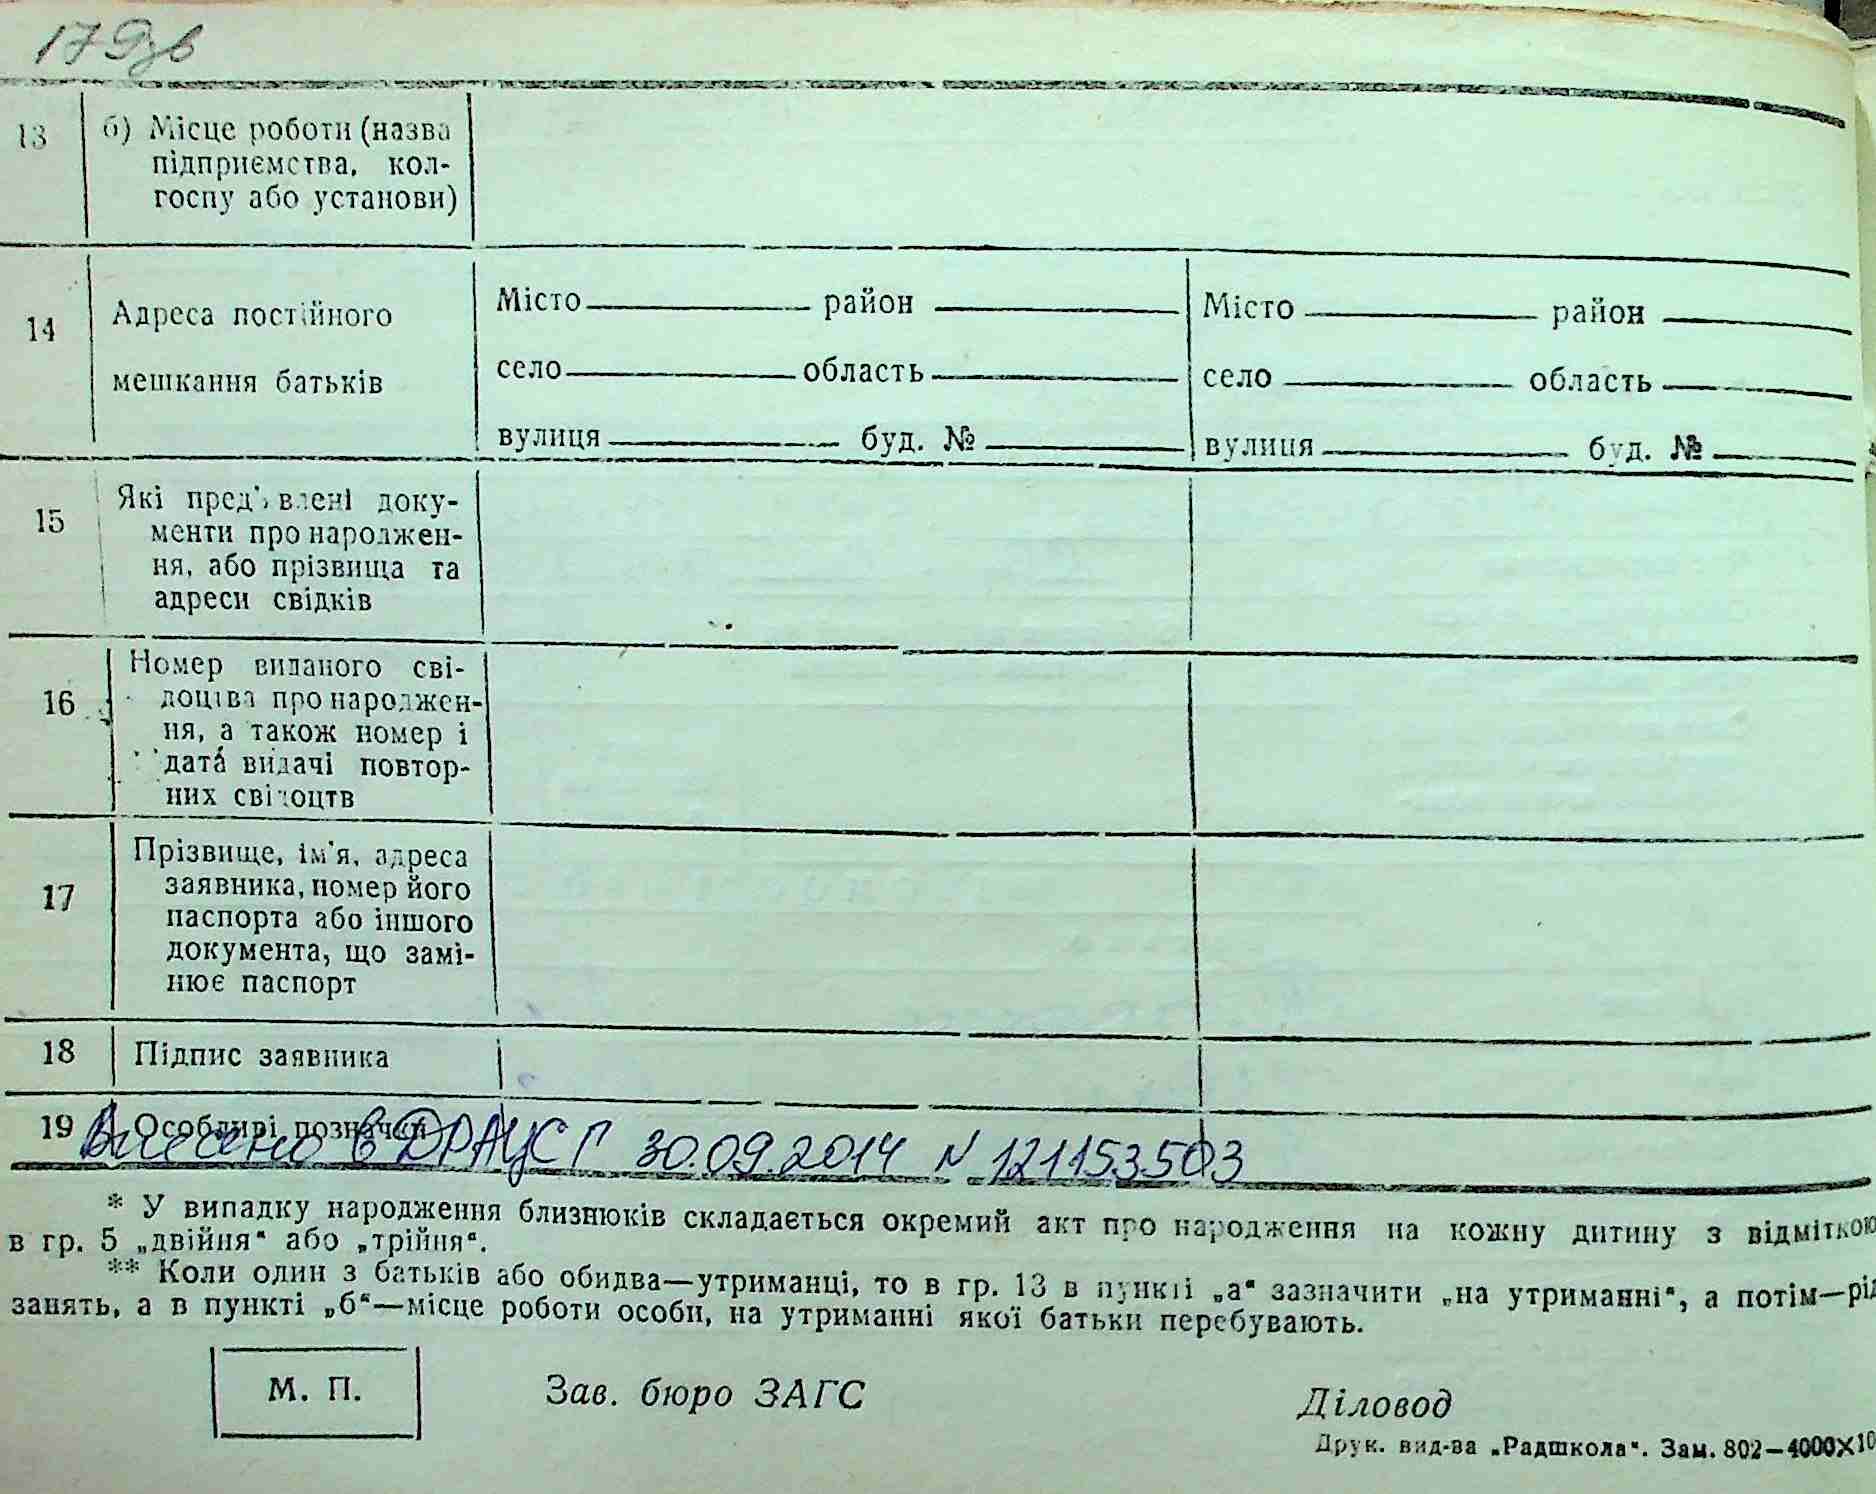 179зв
13 б) Місце роботи (назва
підприємства, кол-
госпу або установи)
14 Адреса постійного
мешкання батьків
Місто район
село область
вулиця буд. №
Місто район
село область
вулиця буд. №
15 Які пред'явлені доку-
менти про народжен-
ня, або прізвища та
адреси свідків
16 Номер виданого сві-
доцтва про народжен-
ня, а також номер і
дата видачі повтор-
них свідоцтв
17 Прізвище, ім'я, адреса
заявника, номер його
паспорта або іншого
документа, що замі-
нює паспорт
18 Підпис заявника
19 Особливі позначки
Внесено в ДРАЦСГ 30.09.2014 N 121153503
* У випадку народження близнюків складається окремий акт про народження на кожну дитину з відміткою
в гр. 5 „двійня“ або „трійня“.
** Коли один з батьків або обидва—утриманці, то в гр. 13 в пункті „а“ зазначити „на утриманні“, а потім—рід
занять, а в пункті „б“—місце роботи особи, на утриманні якої батьки перебувають.
М. П.
Зав. бюро ЗАГС
Діловод
Друк. вид-ва „Радшкола“. Зам. 802—4000×10